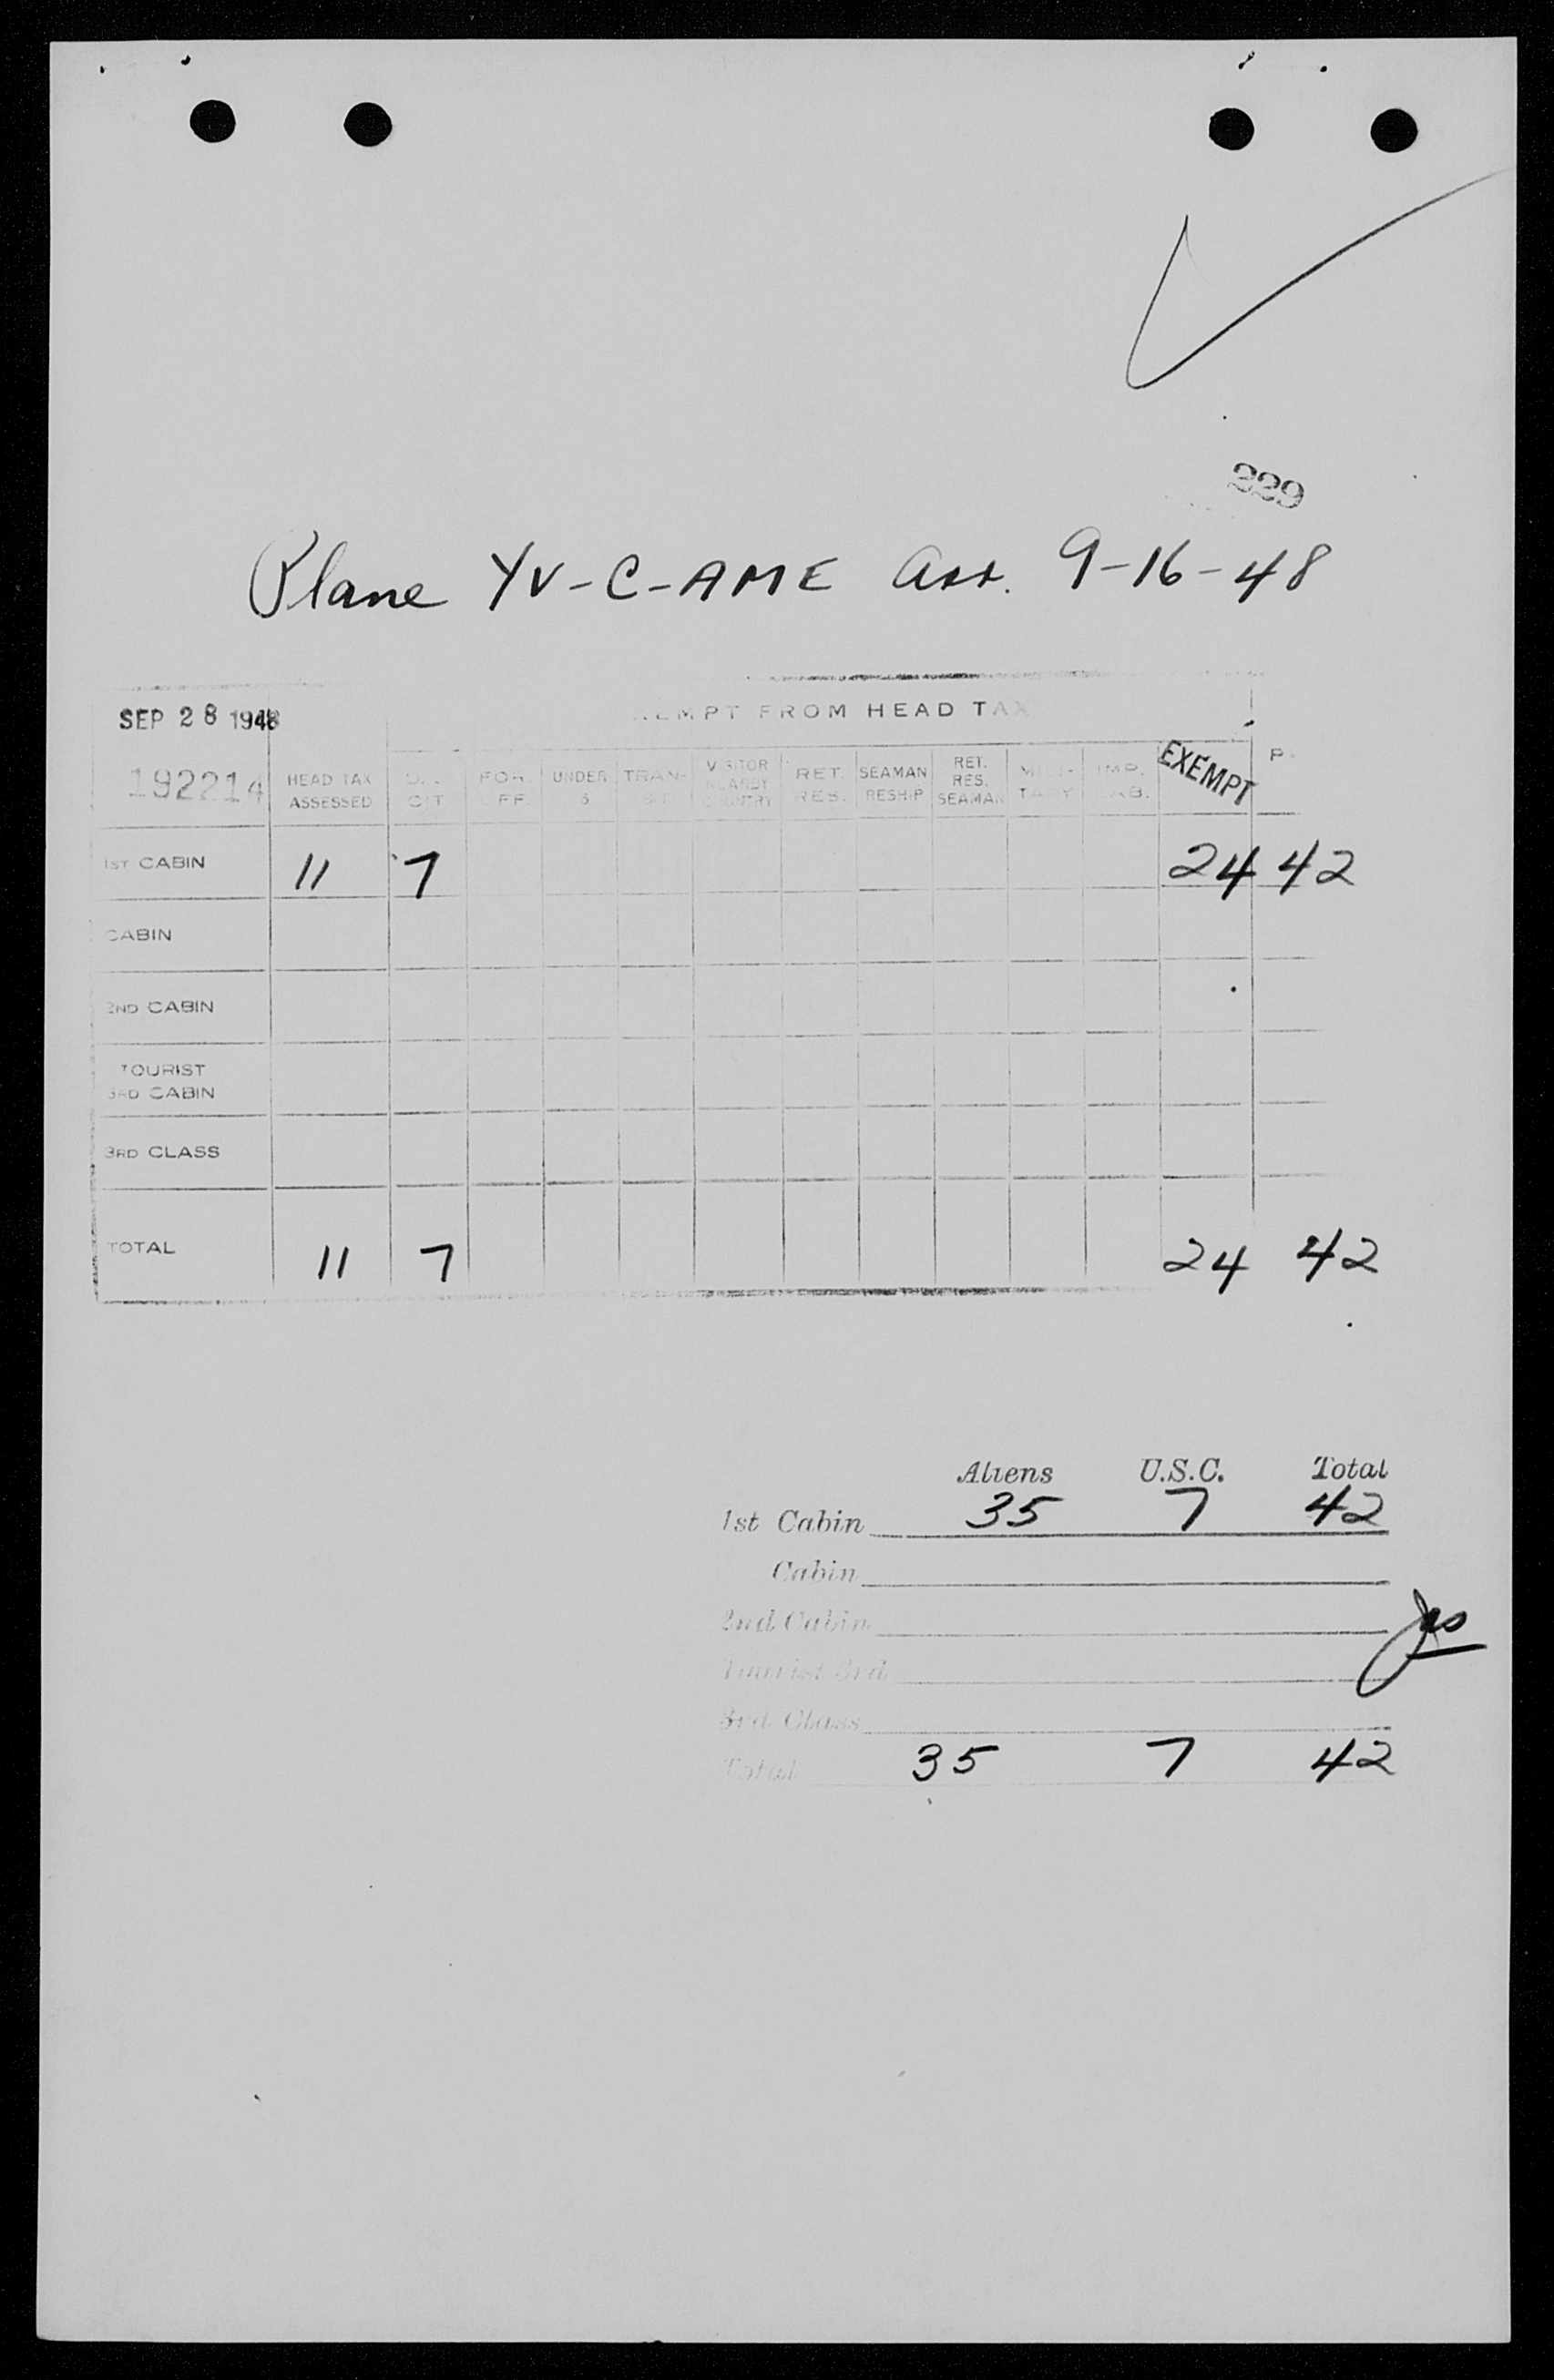 229
Plane YV-C-AME Arr. 9-16-48
SEP 28 1948
FROM HEAD TAX
192214
HEAD TAX ASSESSED
CIT
FOR.
UNDER
VISITOR
RET. RES.
SEAMAN RESHIP
RET. RES. SEAMAN
EXEMPT
1ST CABIN 11 7 24 42
CABIN
2ND CABIN
TOURIST
3RD CABIN
3RD CLASS
TOTAL 11 7 24 42
Aliens U.S.C. Total
1st Cabin 35 7 42
Cabin
2nd Cabin
Tourist 3rd
3rd Class
Total 35 7 42